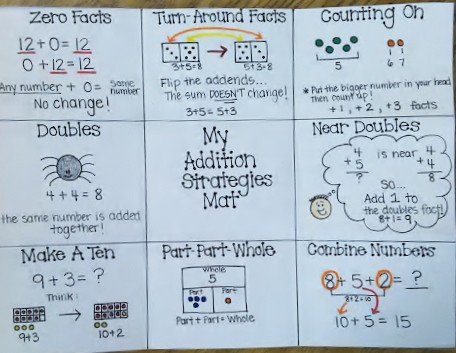 Zero Facts
12 + 0 = 12
0 + 12 = 12
Any number + 0 = same number
No change!
Turn-Around Facts
3+5=8
5+3=8
Flip the addends...
The sum DOESN'T change!
3+5=5+3
Counting On
5
6 7
* Put the bigger number in your head
Then count up!
+1, +2, +3 facts
Doubles
4 + 4 = 8
the same number is added
together!
My
Addition
Strategies
Mat
Near Doubles
4
+ 5
?
is near
4
+ 4
8
So...
Add 1 to
the doubles fact!
8+1=9
Make A Ten
9 + 3 = ?
Think:
9+3
10+2
Part-Part-Whole
Whole
5
Part
Part
Part + Part = Whole
Combine Numbers
8 + 5 + 2 = ?
8+2=10
10 + 5 = 15